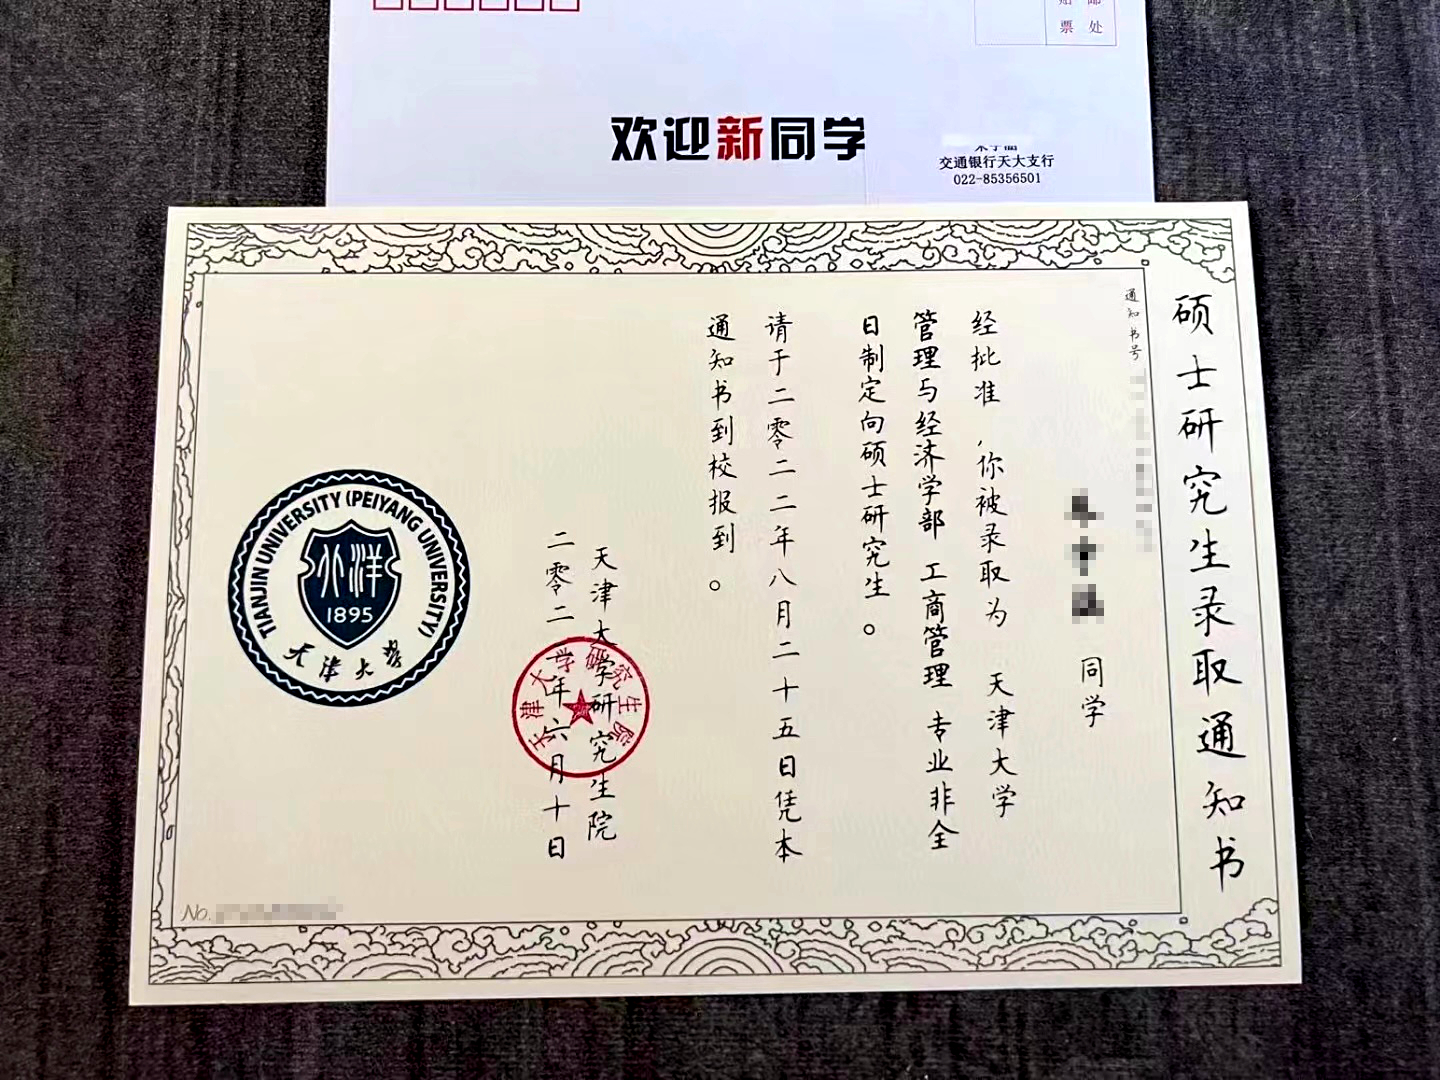 票 处
欢迎新同学
交通银行天大支行
022-85356501
硕士研究生录取通知书
通知书号
同学
经批准,你被录取为 天津大学
管理与经济学部 工商管理 专业非全
日制定向硕士研究生。
请于二零二二年八月二十五日凭本
通知书到校报到。
天津大学研究生院
二零二二年六月十日
天津大学研究生院
TIANJIN UNIVERSITY (PEIYANG UNIVERSITY)
北洋
1895
天津大学
No.